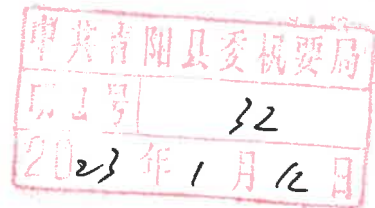 中共青阳县委机要局
32
2023年1月12日